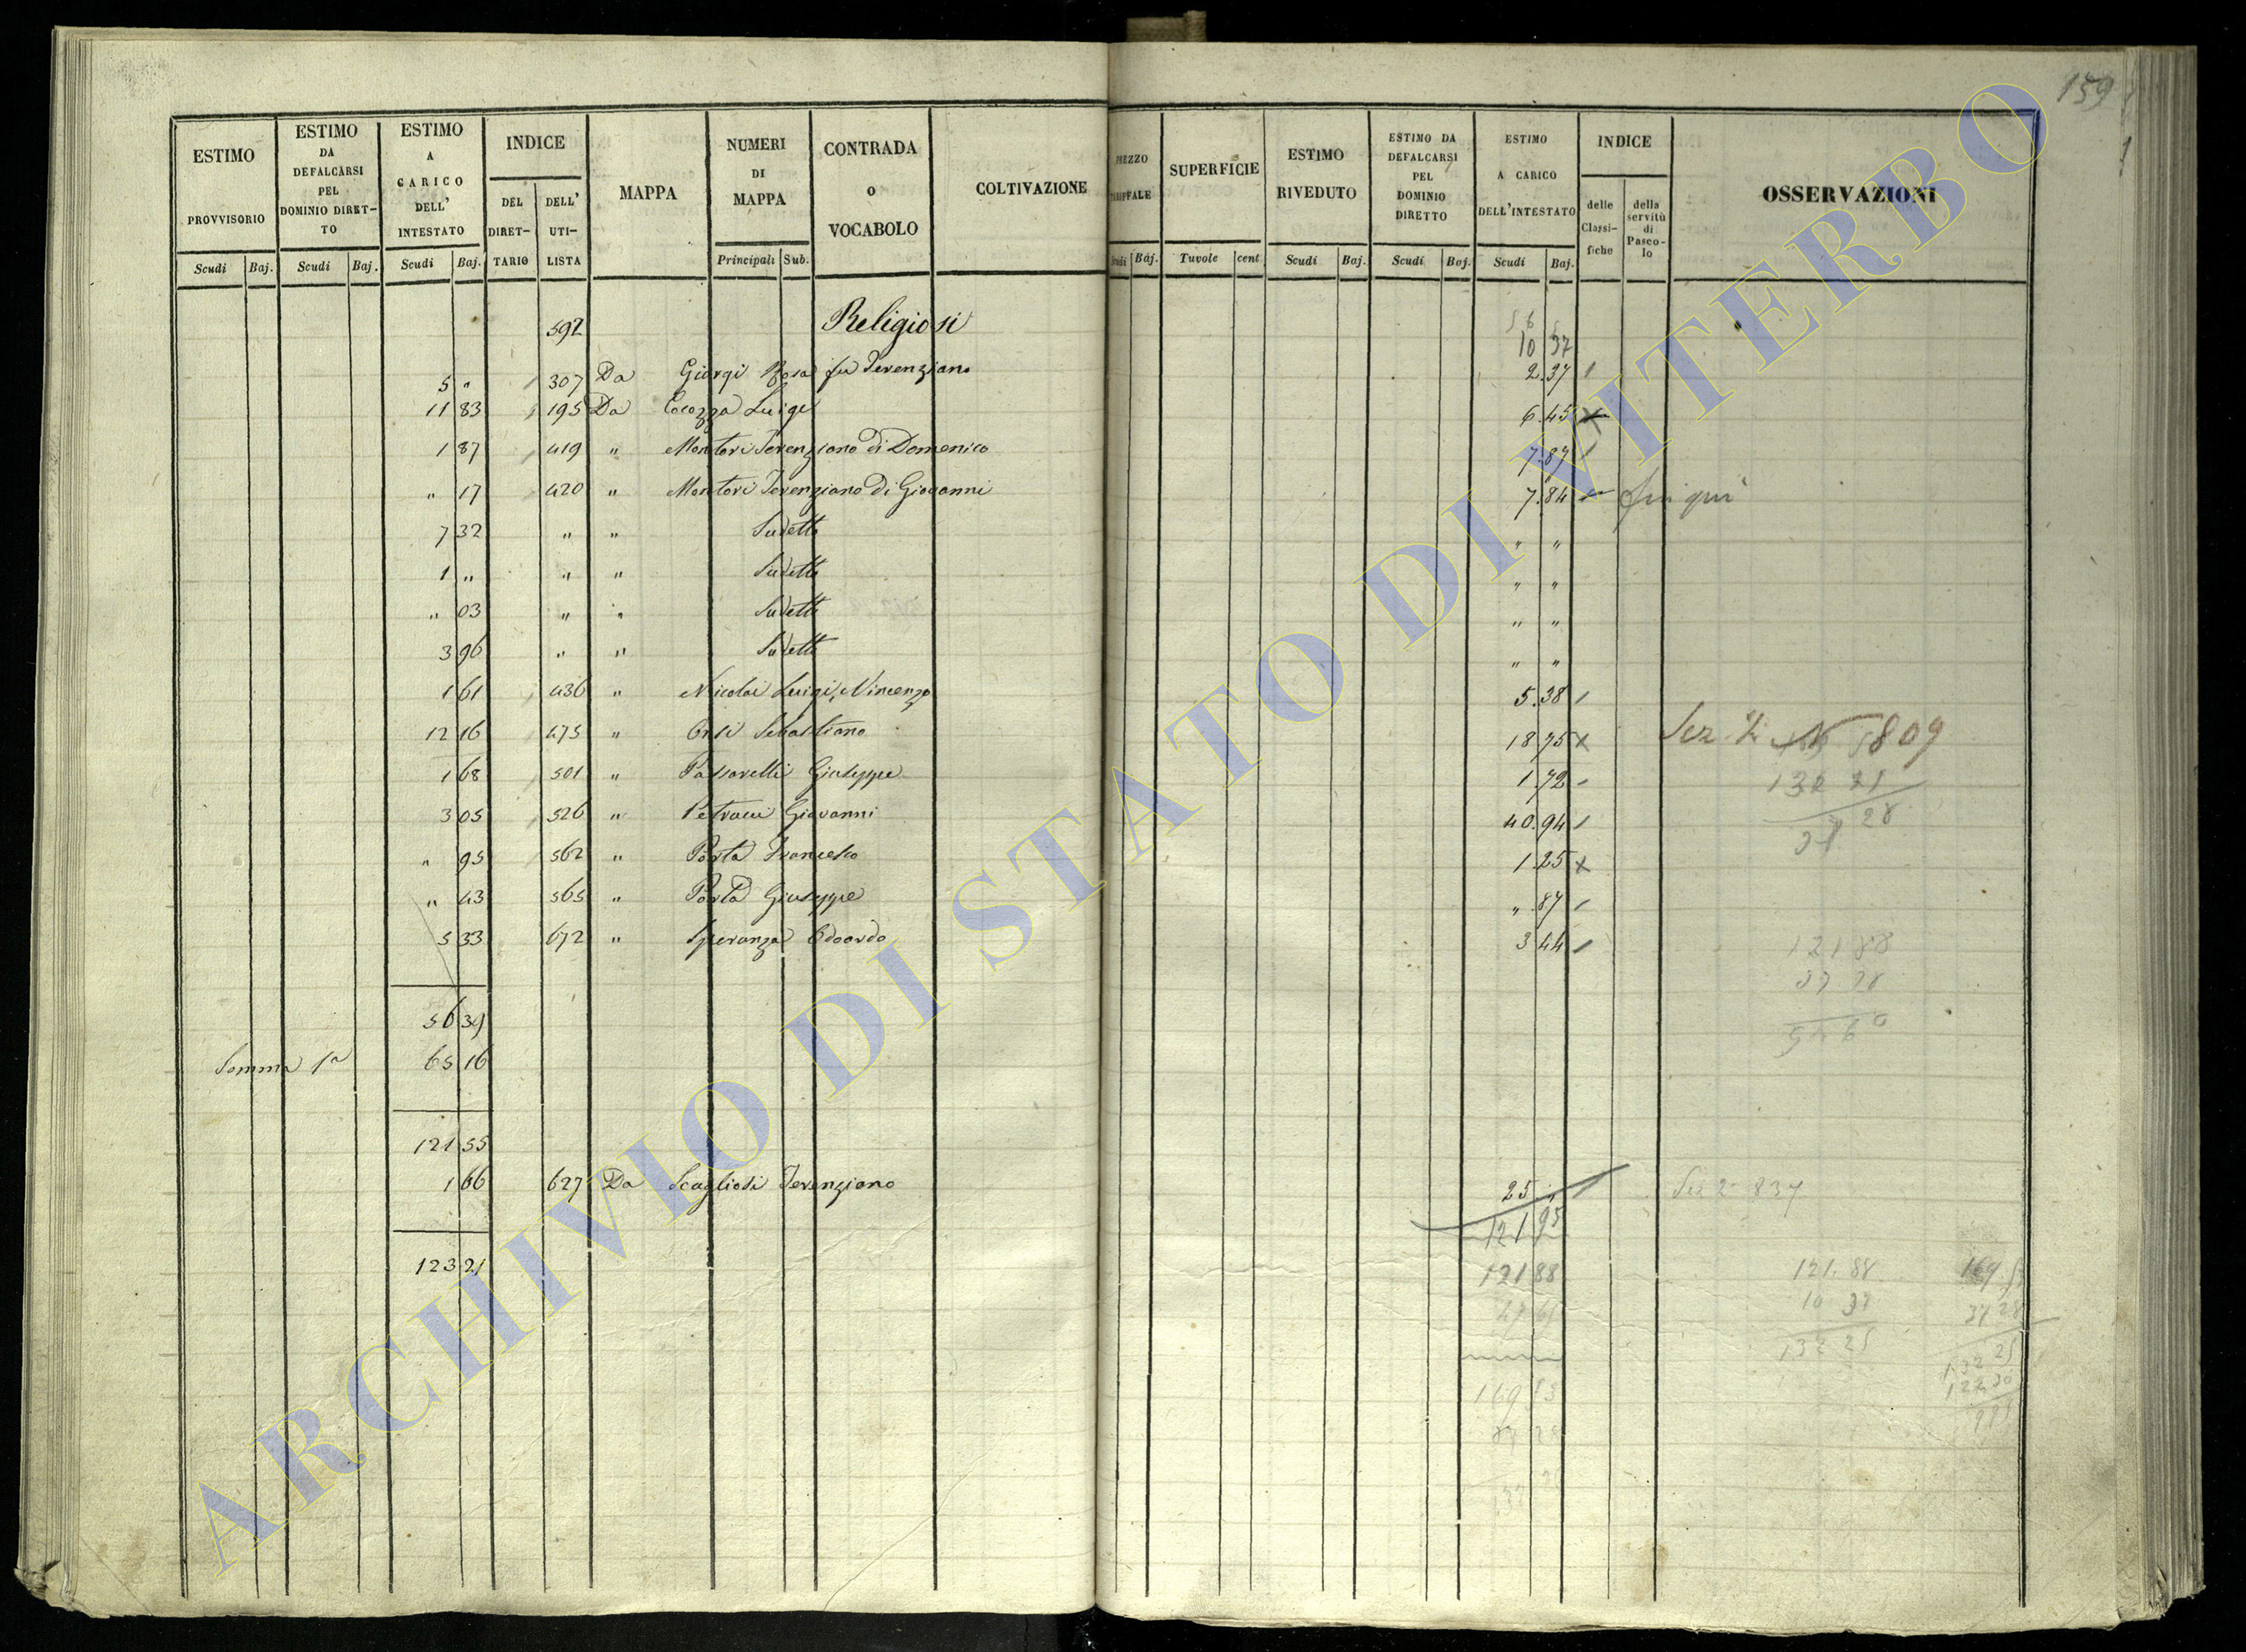 159
ESTIMO PROVVISORIO Scudi Baj.
ESTIMO DA DEFALCARSI PEL DOMINIO DIRETTO Scudi Baj.
ESTIMO A CARICO DELL' INTESTATO Scudi Baj.
INDICE DEL DIRETTARIO DELL' UTILISTA
MAPPA
NUMERI DI MAPPA Principali Sub.
CONTRADA o VOCABOLO
COLTIVAZIONE
Baj.
SUPERFICIE Tavole cent
ESTIMO RIVEDUTO Scudi Baj.
ESTIMO DA DEFALCARSI PEL DOMINIO DIRETTO Scudi Baj.
ESTIMO A CARICO DELL'INTESTATO Scudi Baj.
INDICE delle Classifiche della servitù di Pascolo
OSSERVAZIONI
592 Religiosi 10 37
5 " 307 Da Giorgi Rosa fu Terenziano 2.37
11 83 195 Da Cocozza Luigi 6.45 x
1 87 419 " Montori Terenziano di Domenico 7.87
" 17 420 " Montori Terenziano di Giovanni 7.84 fin qui
7 32 " " Sudetto " "
1 " " " Sudetto " "
" 03 " " Sudetto " "
3 96 " " Sudetto " "
1 61 436 " Nicolai Luigi, Vincenzo 5.38
12 16 475 " Orsi Sebastiano 18.75 x Sez 2 809
1 68 501 " Passarelli Giuseppe 1.72
3 05 526 " Petrucci Giovanni 40.94
" 95 562 " Porta Francesco 1.25 x
" 43 565 " Porta Giuseppe ".87
5 33 672 " Speranza Edoardo 3 44
121 88
56 39
Somma 1a 65 16
121 55
1 66 627 Da Scagliosi Terenziano 25 " Sez 2 837
121 95
123 21 121 88 121.88
10 37
132 25
169 53
ARCHIVIO DI STATO DI VITERBO